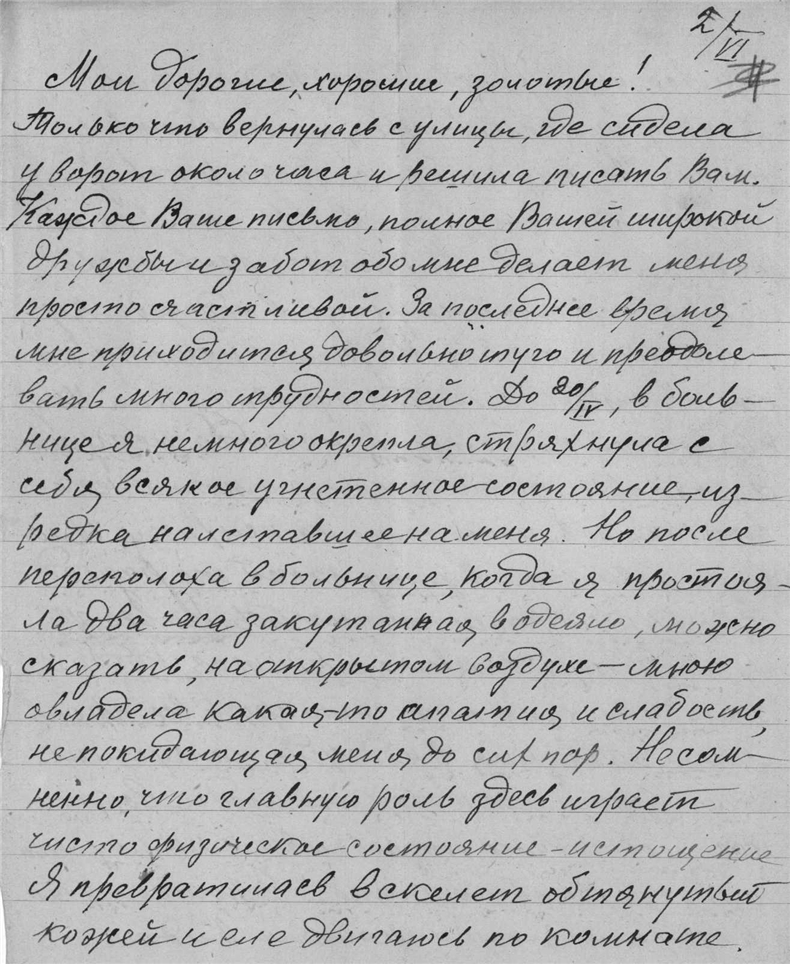 2/VI
Мои дорогие, хорошие, золотые!
Только что вернулась с улицы, где сидела
у ворот около часа и решила писать Вам.
Каждое Ваше письмо, полное Вашей широкой
дружбы и забот обо мне делает меня
просто счастливой. За последнее время
мне приходится довольно туго и преодоле-
вать много трудностей. До 20/IV, в боль-
нице я немного окрепла, стряхнула с
себя всякое угнетенное состояние, из-
редка налетавшее на меня. Но после
переполоха в больнице, когда я простоя-
ла два часа закутанная в одеяло, можно
сказать, на открытом воздухе – мною
овладела какая-то апатия и слабость,
не покидающая меня до сих пор. Несом-
ненно, что главную роль здесь играет
чисто физическое состояние – истощение
Я превратилась в скелет обтянутый
кожей и еле двигаюсь по комнате.